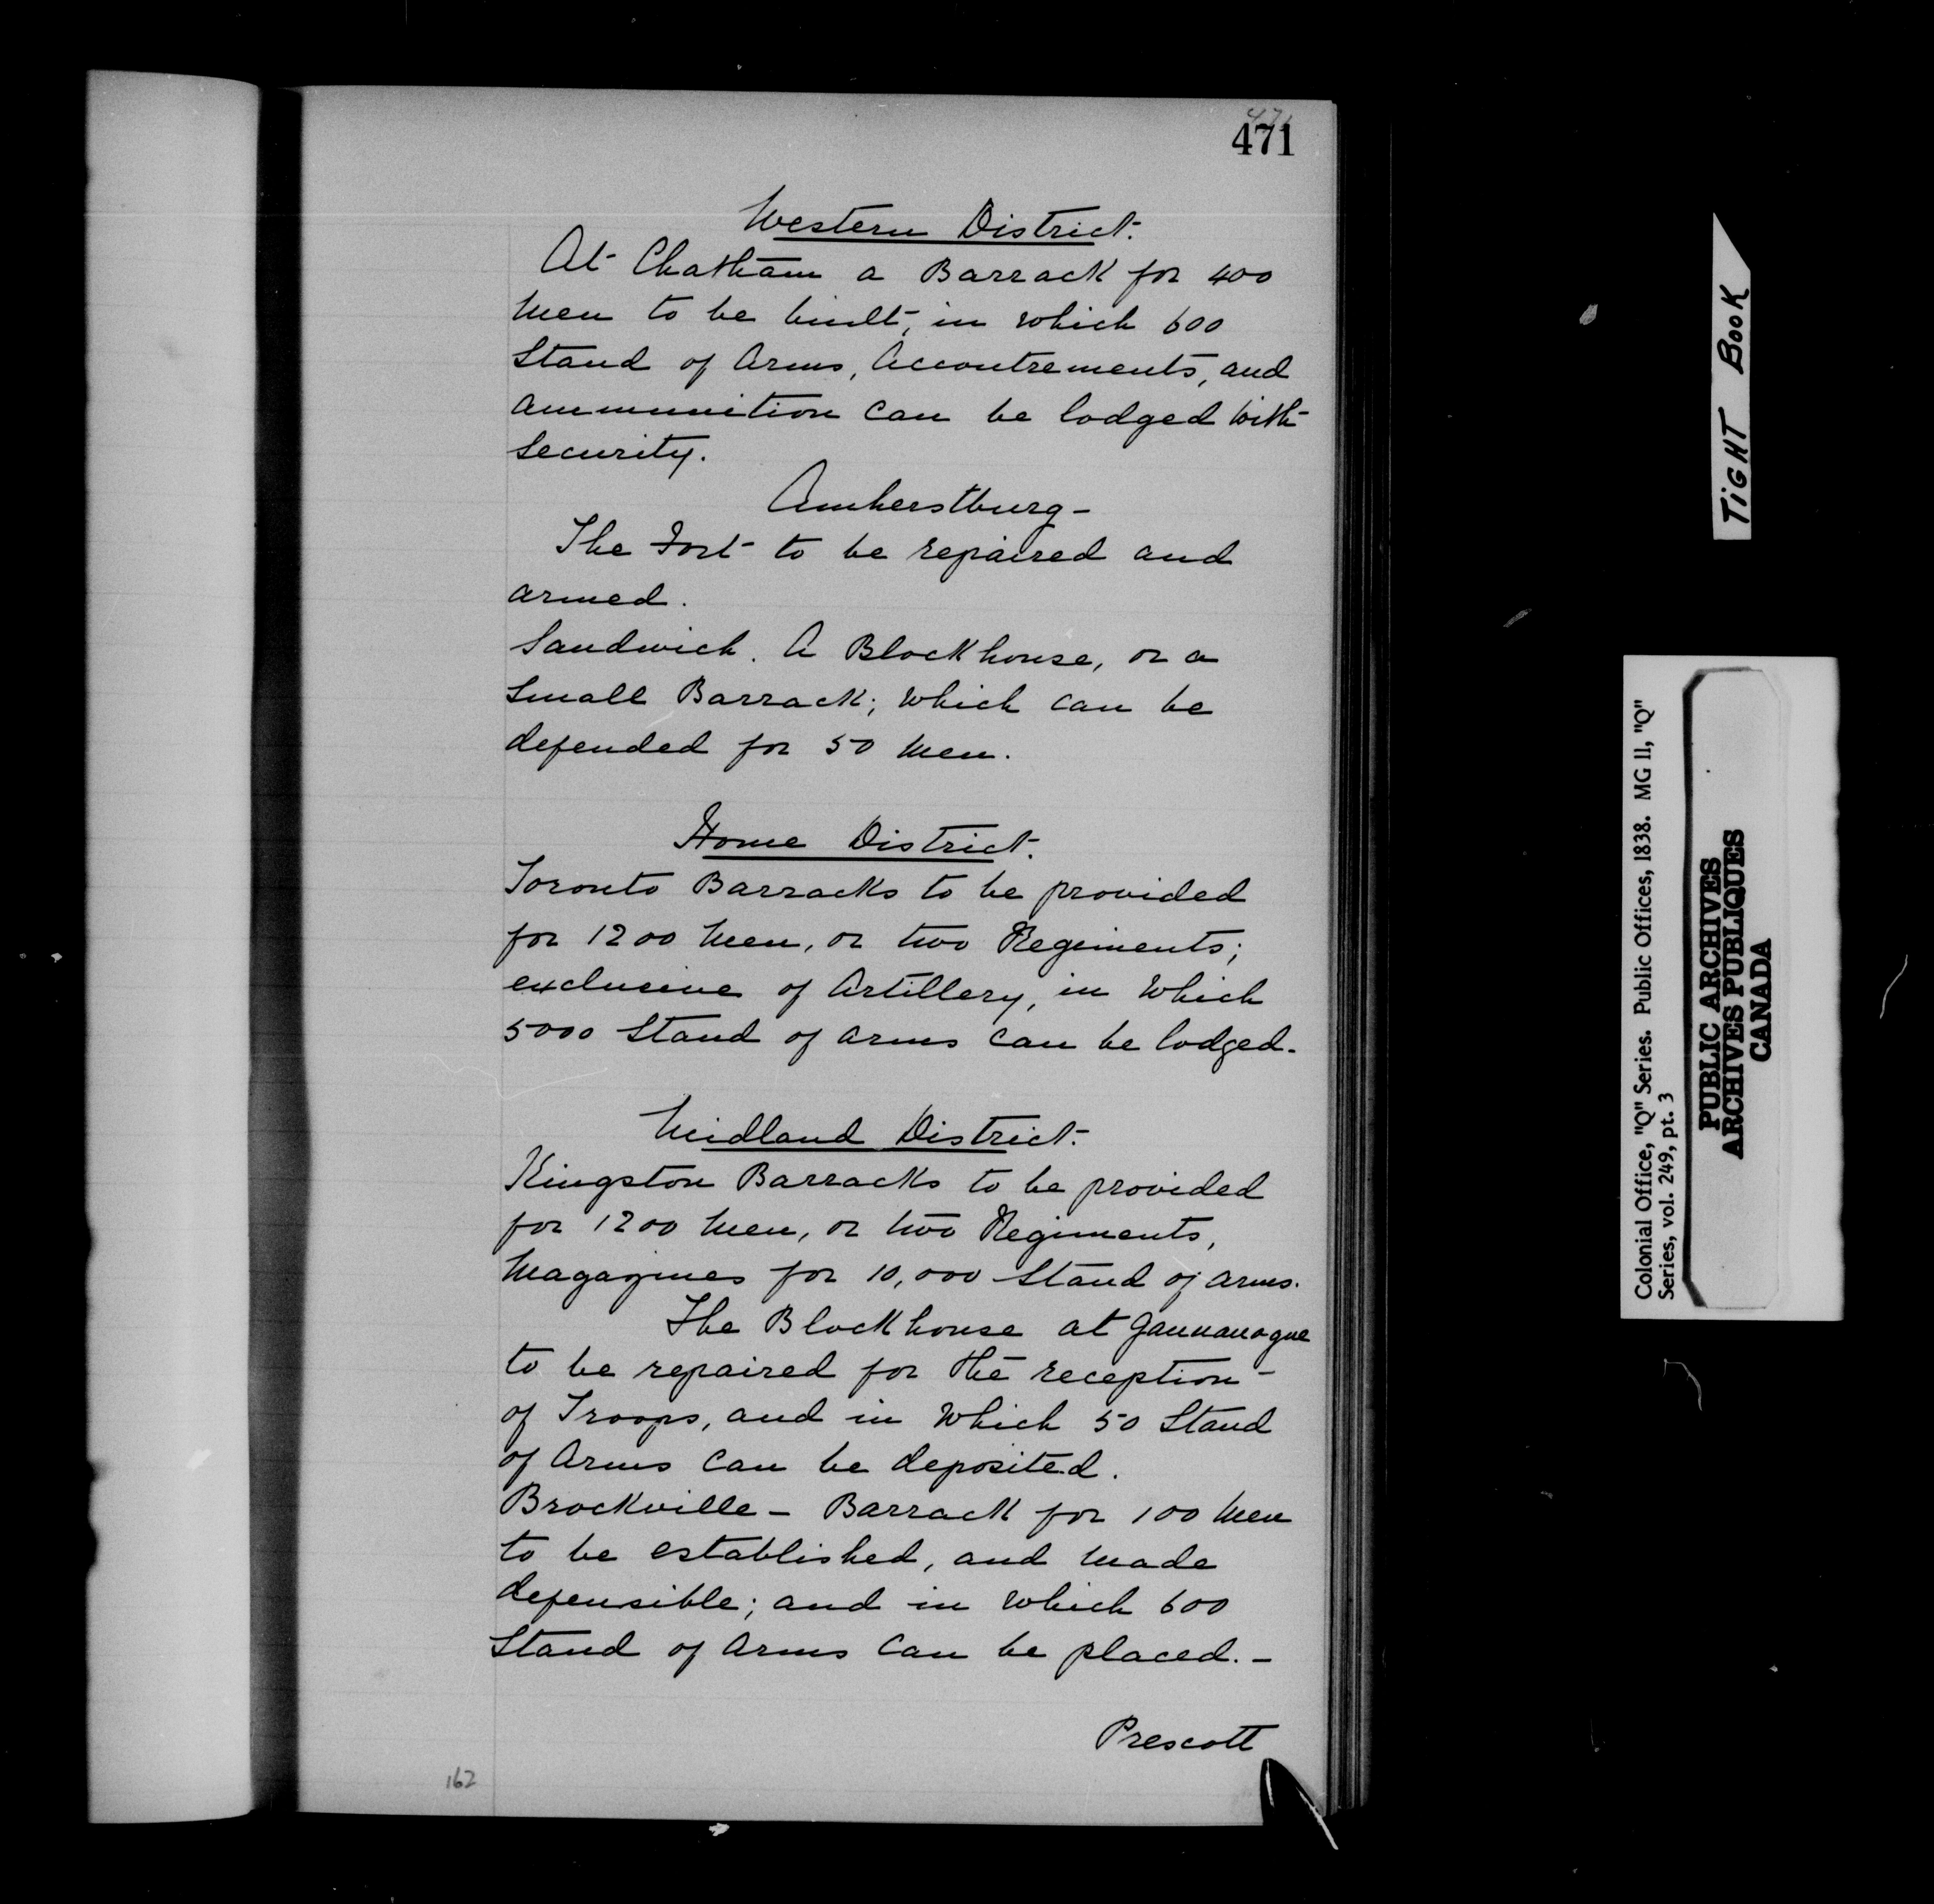 471
471
Western District.
At Chatham a Barrack for 400
Men to be built, in which 600
Stand of Arms, Accoutrements, and
Ammunition can be lodged with
Security.
Amherstburg -
The Fort to be repaired and
armed.
Sandwich. A Blockhouse, or a
Small Barrack; which can be
defended for 50 Men.
Home District.
Toronto Barracks to be provided
for 1200 Men, or two Regiments;
exclusive of Artillery, in which
5000 Stand of arms can be lodged.
Midland District.
Kingston Barracks to be provided
for 1200 Men, or two Regiments,
Magazines for 10,000 Stand of arms.
The Blockhouse at Gannanoque
to be repaired for the reception -
of Troops, and in which 50 Stand
of Arms can be deposited.
Brockville - Barrack for 100 Men
to be established, and made
defensible; and in which 600
Stand of Arms can be placed. -
Prescott
162
TIGHT BOOK
Colonial Office, "Q" Series. Public Offices, 1838. MG 11, "Q"
Series, vol. 249, pt. 3
PUBLIC ARCHIVES
ARCHIVES PUBLIQUES
CANADA